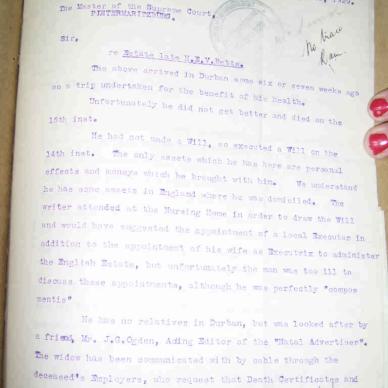 1929.
The Master of the Supreme Court,
PIETERMARITZBURG.
Sir.
re Estate late N.E.V.Betts.
The above arrived in Durban some six or seven weeks ago
on a trip undertaken for the benefit of his health.
Unfortunately he did not get better and died on the
15th inst.
He had not made a Will, so executed a Will on the
14th inst. The only assets which he has here are personal
effects and moneys which he brought with him. We understand
he has some assets in England where he was domiciled. The
writer attended at the Nursing Home in order to draw the Will
and would have suggested the appointment of a local Executor in
addition to the appointment of his wife as Executrix to administer
the English Estate, but unfortunately the man was too ill to
discuss these appointments, although he was perfectly "compos
mentis"
He has no relatives in Durban, but was looked after by
a friend, Mr. J.G.Ogden, Ading Editor of the "Natal Advertiser".
The widow has been communicated with by cable through the
deceased's Employers, who request that Death Certificates and